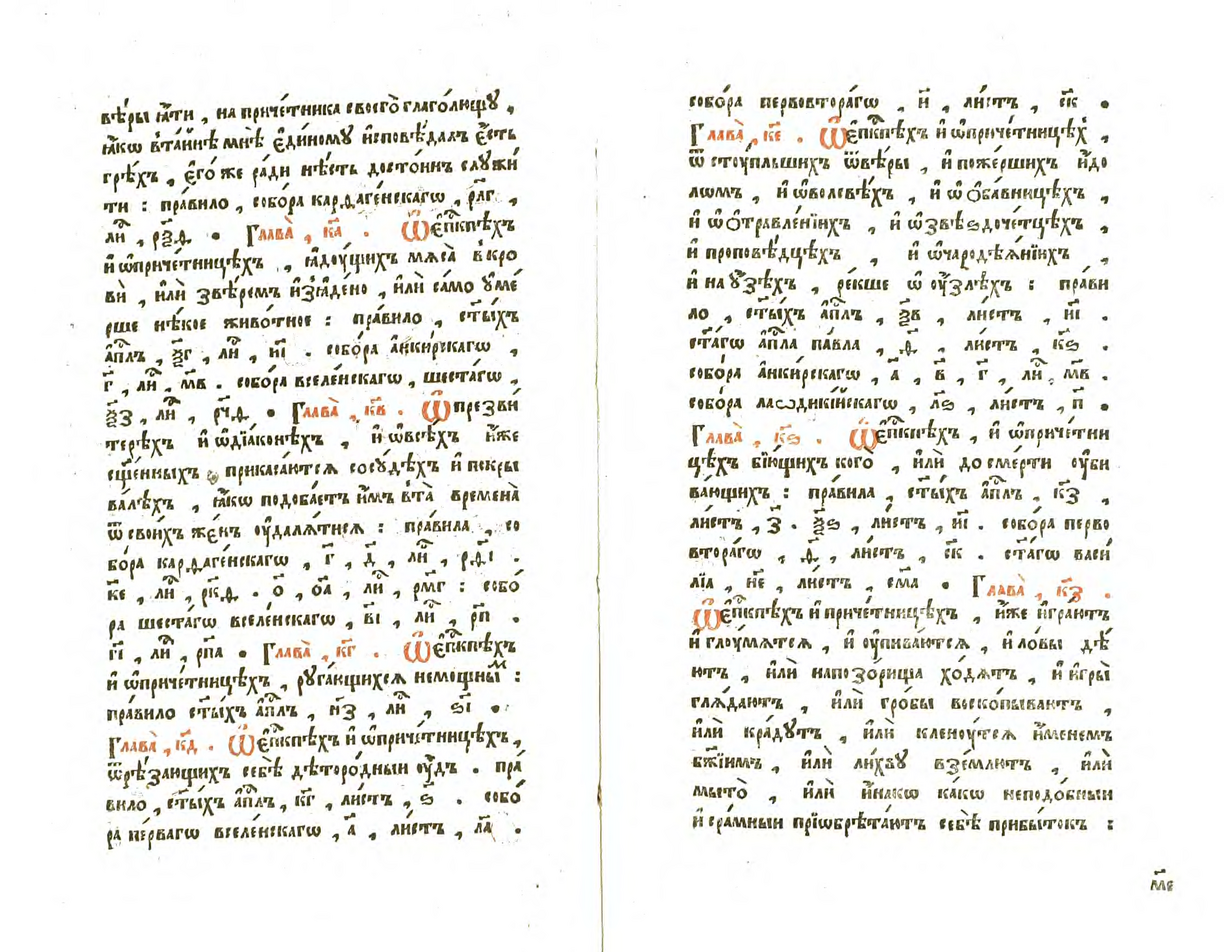 вѣ́ры ꙗ҆́ти , на приче́тника своего̀ глаго́лющꙋ ,
ꙗ҆́кѡ вта́йнѣ мнѣ̀ є҆ди́номꙋ и҆сповѣ́далъ є҆́сть
грѣ́хъ , є҆го́ же ра́ди нѣ́сть досто́инъ слꙋжи́
ти : пра́вило , собо́ра карѳаге́нскагѡ , р҃лг ,
ли҃ , р҃ѯѳ . Глава̀ , к҃а . Ѡ҆ є҆пⷭ҇кпѣхъ
и҆ ѡ҆приче́тницѣхъ , ꙗ҆дꙋ́щихъ мѧ́са вкро
вѝ , и҆лѝ звѣ́ремъ и҆з̾ꙗ́дено , и҆лѝ са́мо ᲂу҆ме́
рше нѣ́кое живо́тное : пра́вило , ст҃ы́хъ
а҆пⷭ҇лъ , ѯ҃г , ли҃ , и҃і . собо́ра а҆нки́рскагѡ ,
г҃ , ли҃ , м҃в . собо́ра вселе́нскагѡ , шеста́гѡ ,
ѯ҃з , ли҃ , р҃чѳ . Глава̀ , к҃в . Ѡ҆ презви́
терѣхъ и҆ ѡ҆дїа́конѣхъ , и҆ ѡ҆всѣ́хъ и҆́же
сщ҃е́нныхъ прикаса́ютсѧ сосꙋ́дѣхъ и҆ покры
ва́лѣхъ , ꙗ҆́кѡ подоба́етъ и҆̀мъ вта̀ времена̀
ѿ свои́хъ же́нъ ᲂу҆далѧ́тисѧ : пра́вила , со
бо́ра карѳаге́нскагѡ , г҃ , д҃ , ли҃ , р҃ѳі .
к҃е , ли҃ , р҃кѳ . о҃ , о҃а , ли҃ , р҃мг : собо́
ра шеста́гѡ вселе́нскагѡ , в҃і , ли҃ , р҃п .
г҃і , ли҃ , р҃па . Глава̀ , к҃г . Ѡ҆ є҆пⷭ҇кпѣхъ
и҆ ѡ҆причетницѣхъ , рꙋга́ющихсѧ немощны́мⷨ :
пра́вило ст҃ы́хъ а҆пⷭ҇лъ , н҃з , ли҃ , ѕ҃і .
Глава̀ , к҃д . Ѡ҆ є҆пⷭ҇кпѣхъ и҆ ѡ҆причетницѣхъ ,
ѿрѣ́зающихъ себѣ̀ дѣторо́дныи ᲂу҆́дъ . пра́
вило , ст҃ы́хъ а҆пⷭ҇лъ , к҃г , ли́стъ , ѕ҃ . собо́
ра пе́рвагѡ вселе́нскагѡ , а҃ , ли́стъ , л҃а .
собо́ра первовтора́гѡ , и҃ , ли́стъ , с҃к .
Глава̀ , к҃е . Ѡ҆ є҆пⷭ҇кпѣхъ и҆ ѡ҆причетницѣх ,
ѿ стꙋ́пльшихъ ѿвѣ́ры , и҆ поже́рших и҆̀до
ломъ , и҆ ѡ҆волсвѣ́хъ , и҆ ѡ҆ ѻ҆ба́вницѣхъ ,
и҆ ѡ҆ ѻ҆травле́нїихъ , и҆ ѡ҆звѣѕдоче́тцѣхъ ,
и҆ проповѣ́дцѣхъ , и҆ ѡ҆чародѣѧ́нїихъ ,
и҆ на ᲂу҆́зѣхъ , ре́кше ѡ҆ ᲂу҆́злѣхъ : пра́ви
ло , ст҃ы́хъ а҆пⷭ҇лъ , ѯ҃в , ли́стъ , и҃і .
ст҃а́гѡ а҆пⷭ҇ла па́вла , ѳ҃ , ли́стъ , к҃ѕ .
собо́ра а҆нки́рскагѡ , а҃ , в҃ , г҃ , ли҃ , м҃в .
собо́ра лаѡдикі́йскагѡ , л҃ѕ , ли́стъ , п҃ .
Глава̀ , к҃ѕ . Ѡ҆ є҆пⷭ҇кпѣхъ , и҆ ѡ҆причетни
цѣхъ бїю́щихъ кого̀ , и҆лѝ до сме́рти ᲂу҆би
ва́ющихъ : пра́вила , ст҃ы́хъ а҆пⷭ҇лъ , к҃з ,
ли́стъ , з҃ . ѯ҃ѕ , ли́стъ , и҃і . собо́ра перво
втора́гѡ , ѳ҃ , ли́стъ , с҃к . ст҃а́гѡ васи́
лїа , н҃е , ли́стъ , с҃ма . Глава̀ , к҃з .
Ѡ҆ є҆пⷭ҇кпѣхъ и҆ приче́тницѣхъ , и҆́же и҆гра́ютъ
и҆ глꙋмѧ́тсѧ , и҆ ᲂу҆пива́ютсѧ , и҆ ловы̀ дѣ́
ютъ , и҆лѝ напозо́рища хо́дѧтъ , и҆ и҆гры̀
глѧ́даютъ , и҆лѝ гро́бы воскопы́ваютъ ,
и҆лѝ кра́дꙋтъ , и҆лѝ кленꙋ́тсѧ и҆́менемъ
бж҃їимъ , и҆лѝ ли́хвꙋ взе́млютъ , и҆лѝ
мыто̀ , и҆лѝ и҆́накѡ ка́кѡ неподо́бныи
и҆ сра́мныи прїѡбрѣта́ютъ себѣ̀ прибы́токъ :
м҃е